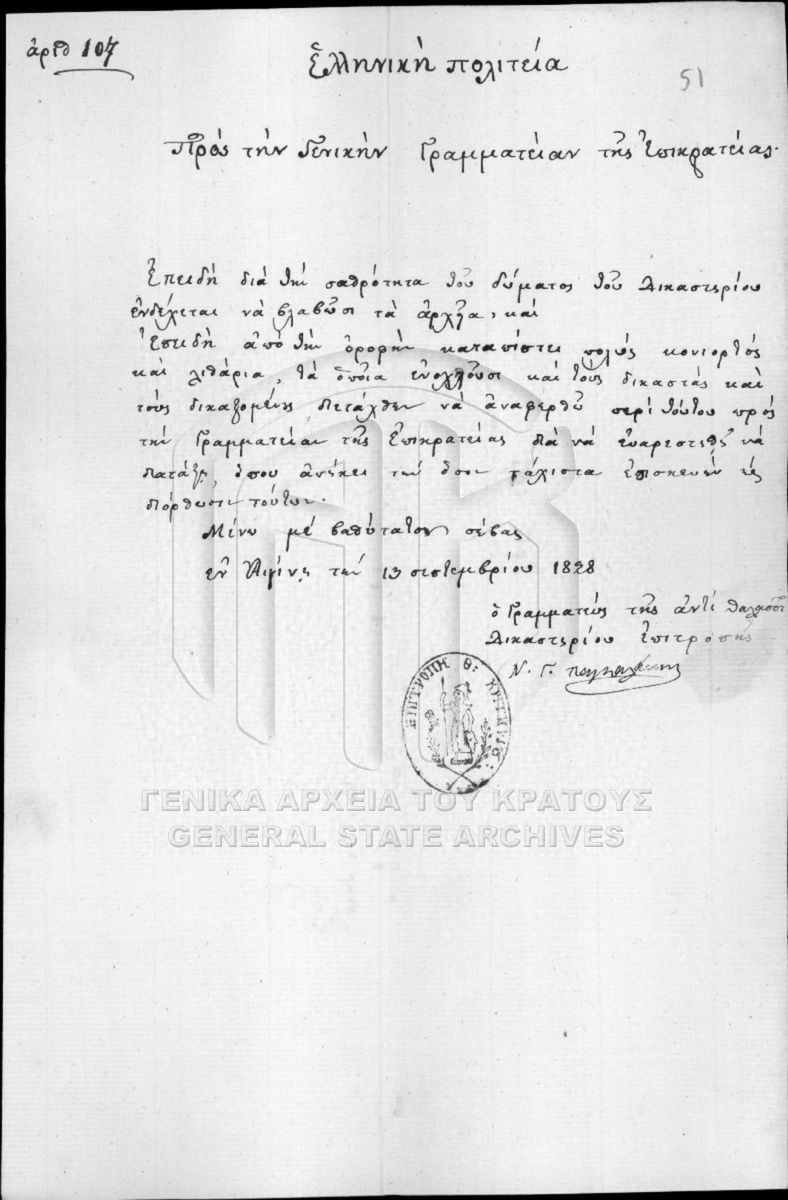 ἀριθ 107
Ἑλληνικὴ πολιτεία
51
Πρὸς τὴν Γενικὴν Γραμματείαν τῆς Ἐπικρατείας.
Ἐπειδὴ διὰ τὴν σαθρότητα τοῦ δώματος τοῦ Δικαστερίου
ἐνδέχεται νὰ βλαβῶσι τὰ ἀρχεῖα, καὶ
Ἐπειδὴ ἀπὸ τὴν ὀροφὴν καταπίπτει πολὺς κονιορτὸς
καὶ λιθάρια, τὰ ὁποῖα ἐνοχλοῦσι καὶ τοὺς δικαστὰς καὶ
τοὺς δικαζομένους διετάχθην νὰ ἀναφερθῶ περὶ τούτου πρὸς
τὴν Γραμματείαν τῆς Ἐπικρατείας διὰ νὰ εὐαρεστηθῇ νὰ
διατάξῃ ὅπου ἀνήκει τὴν ὅσον τάχιστα ἐπισκευὴν εἰς
διόρθωσιν τούτων.
Μένω μὲ βαθύτατον σέβας
ἐν Αἰγίνῃ τὴν 13 σεπτεμβρίου 1828
ὁ Γραμματεὺς τῆς ἀντὶ θαλασσί
Δικαστερίου Ἐπιτροπῆς
Ν. Γ.
ΕΠΙΤΡΟΠΗ Θ:
ΓΕΝΙΚΑ ΑΡΧΕΙΑ ΤΟΥ ΚΡΑΤΟΥΣ
GENERAL STATE ARCHIVES